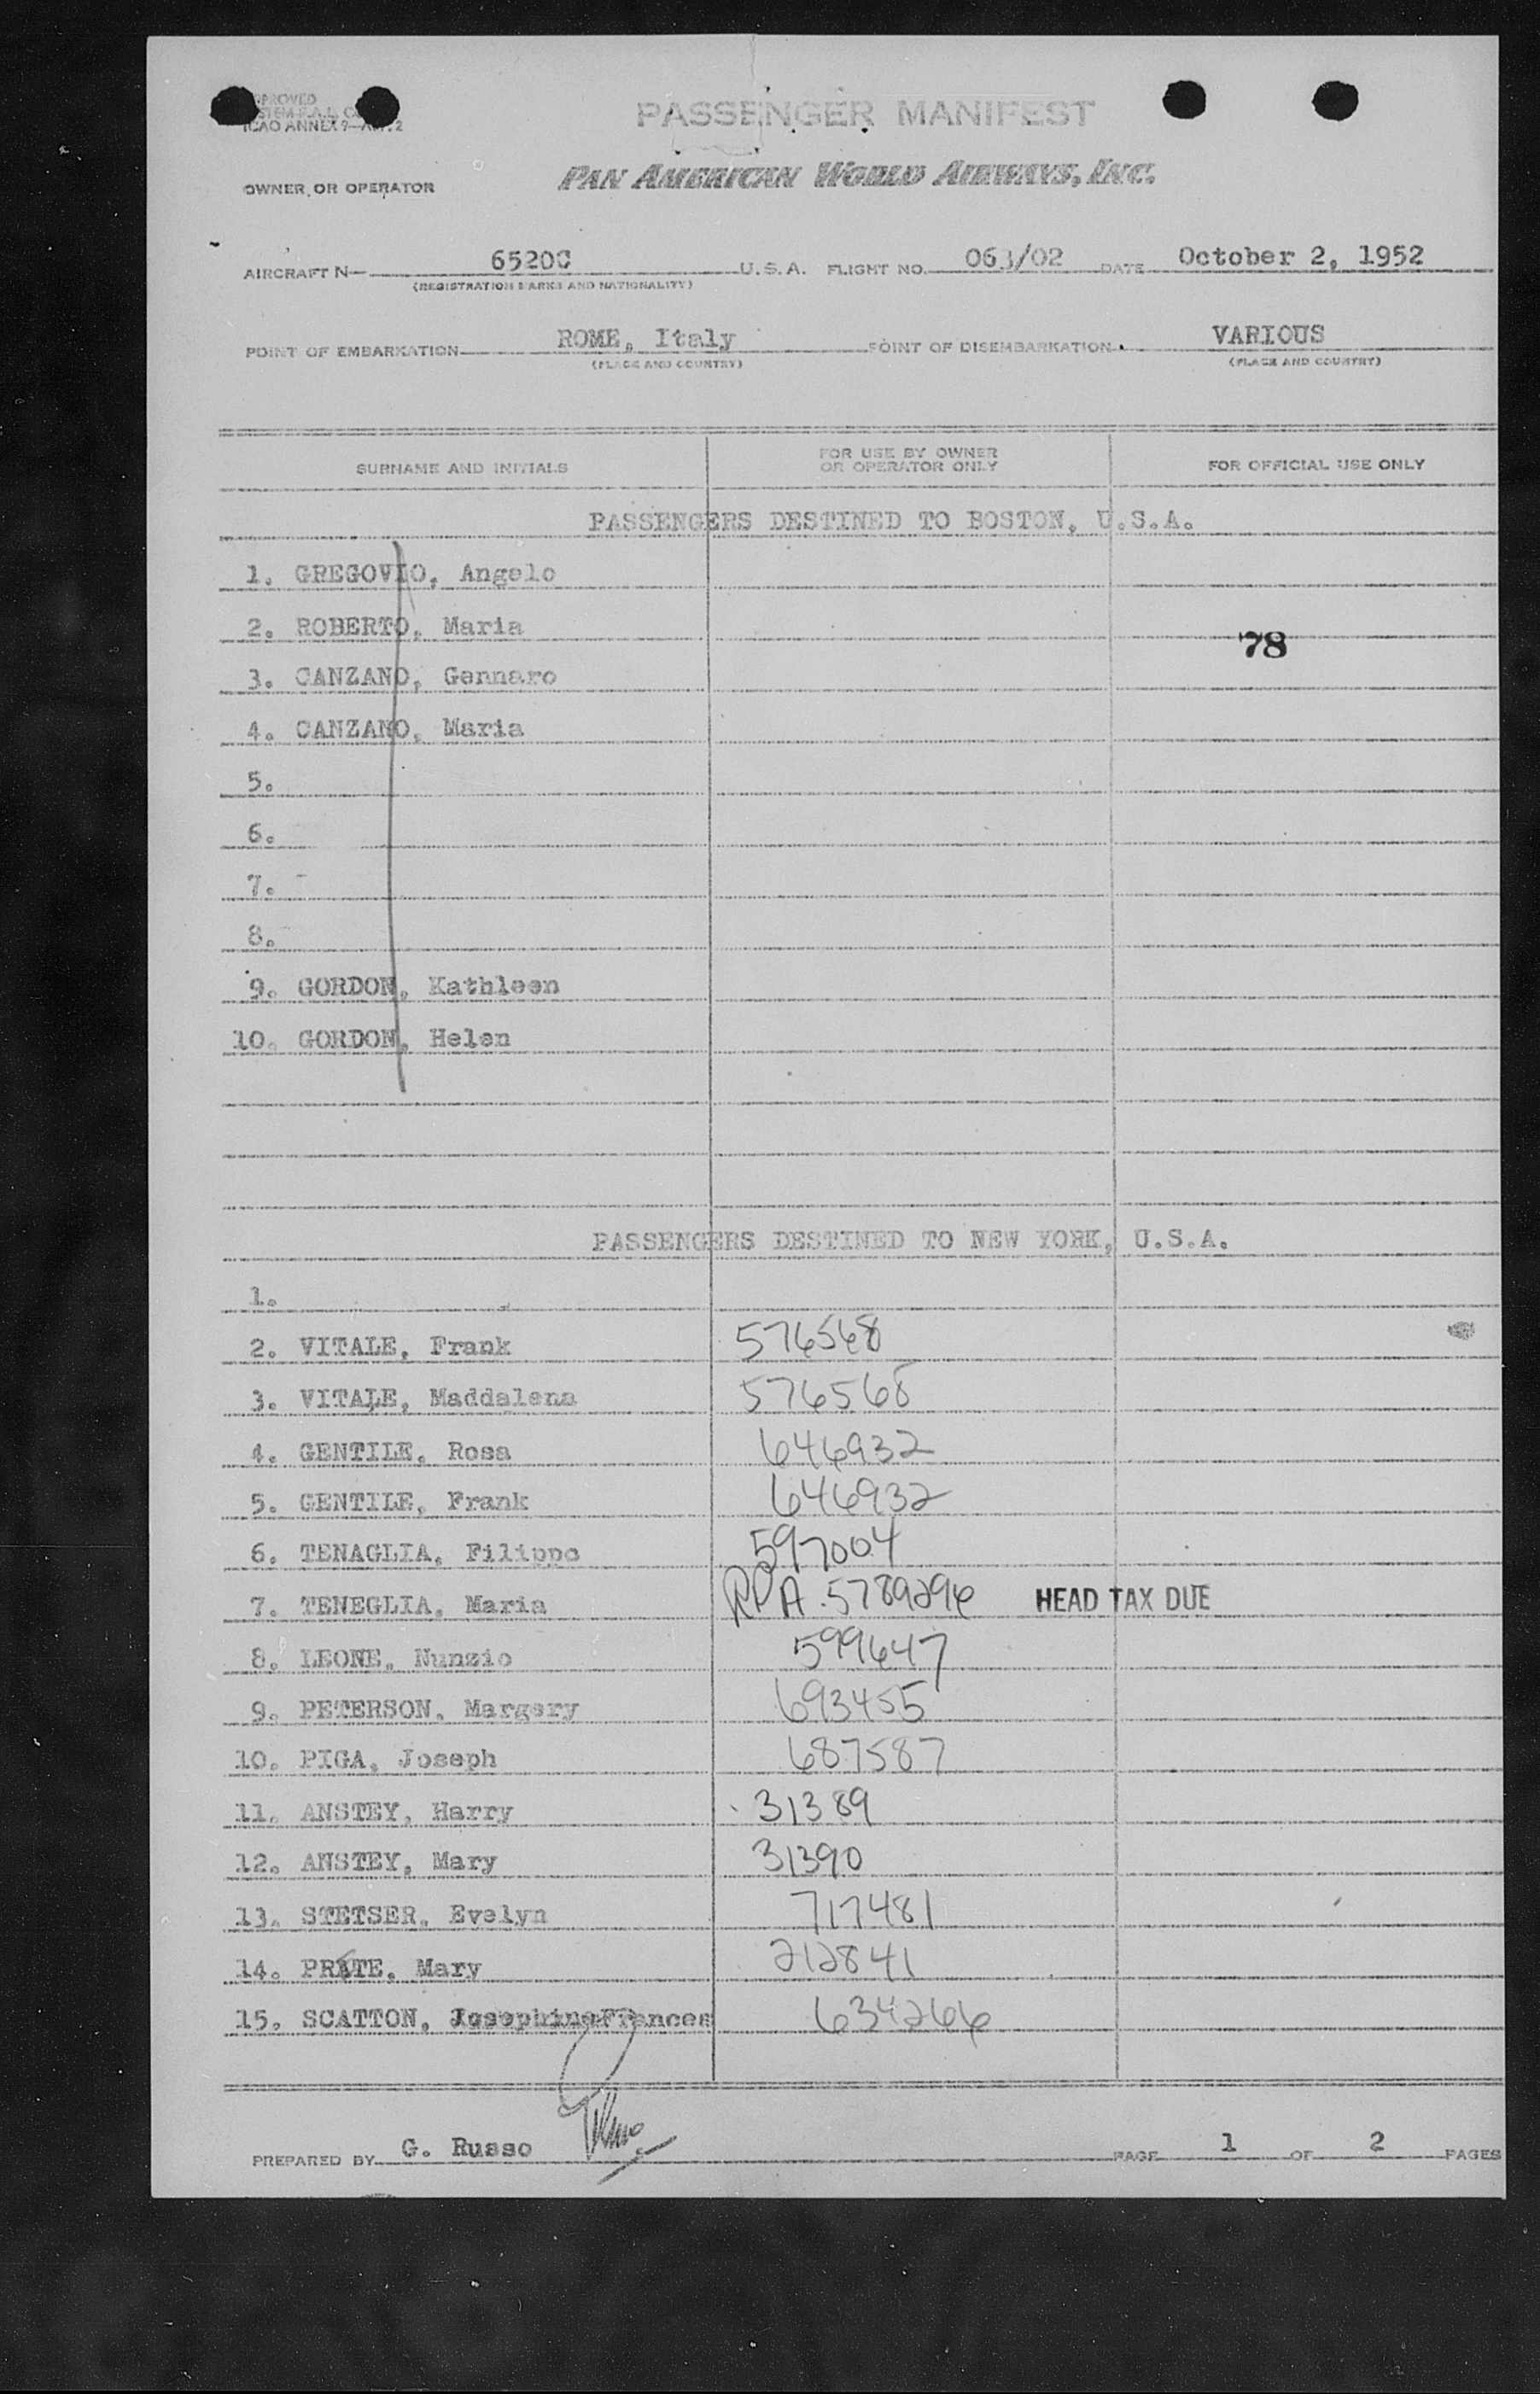 APPROVED
ICAO ANNEX 9
PASSENGER MANIFEST
OWNER OR OPERATOR PAN AMERICAN WORLD AIRWAYS, INC.
AIRCRAFT N— 6520C U.S.A. FLIGHT NO. 063/02 DATE October 2, 1952
(REGISTRATION MARKS AND NATIONALITY)
POINT OF EMBARKATION ROME, Italy POINT OF DISEMBARKATION VARIOUS
(PLACE AND COUNTRY) (PLACE AND COUNTRY)
SURNAME AND INITIALS FOR USE BY OWNER OR OPERATOR ONLY FOR OFFICIAL USE ONLY
PASSENGERS DESTINED TO BOSTON, U.S.A.
1. GREGOVIO, Angelo
2. ROBERTO, Maria
78
3. CANZANO, Gennaro
4. CANZANO, Maria
5.
6.
7.
8.
9. GORDON, Kathleen
10. GORDON, Helen
PASSENGERS DESTINED TO NEW YORK, U.S.A.
1.
2. VITALE, Frank 576568
3. VITALE, Maddalena 576568
4. GENTILE, Rosa 646932
5. GENTILE, Frank 646932
6. TENAGLIA, Filippo 597004
7. TENEGLIA, Maria RPA 5789296 HEAD TAX DUE
8. LEONE, Nunzio 599647
9. PETERSON, Margery 693455
10. PIGA, Joseph 687587
11. ANSTEY, Harry 31389
12. ANSTEY, Mary 31390
13. STETSER, Evelyn 717481
14. PRETE, Mary 212841
15. SCATTON, Frances 634266
PREPARED BY G. Russo PAGE 1 OF 2 PAGES